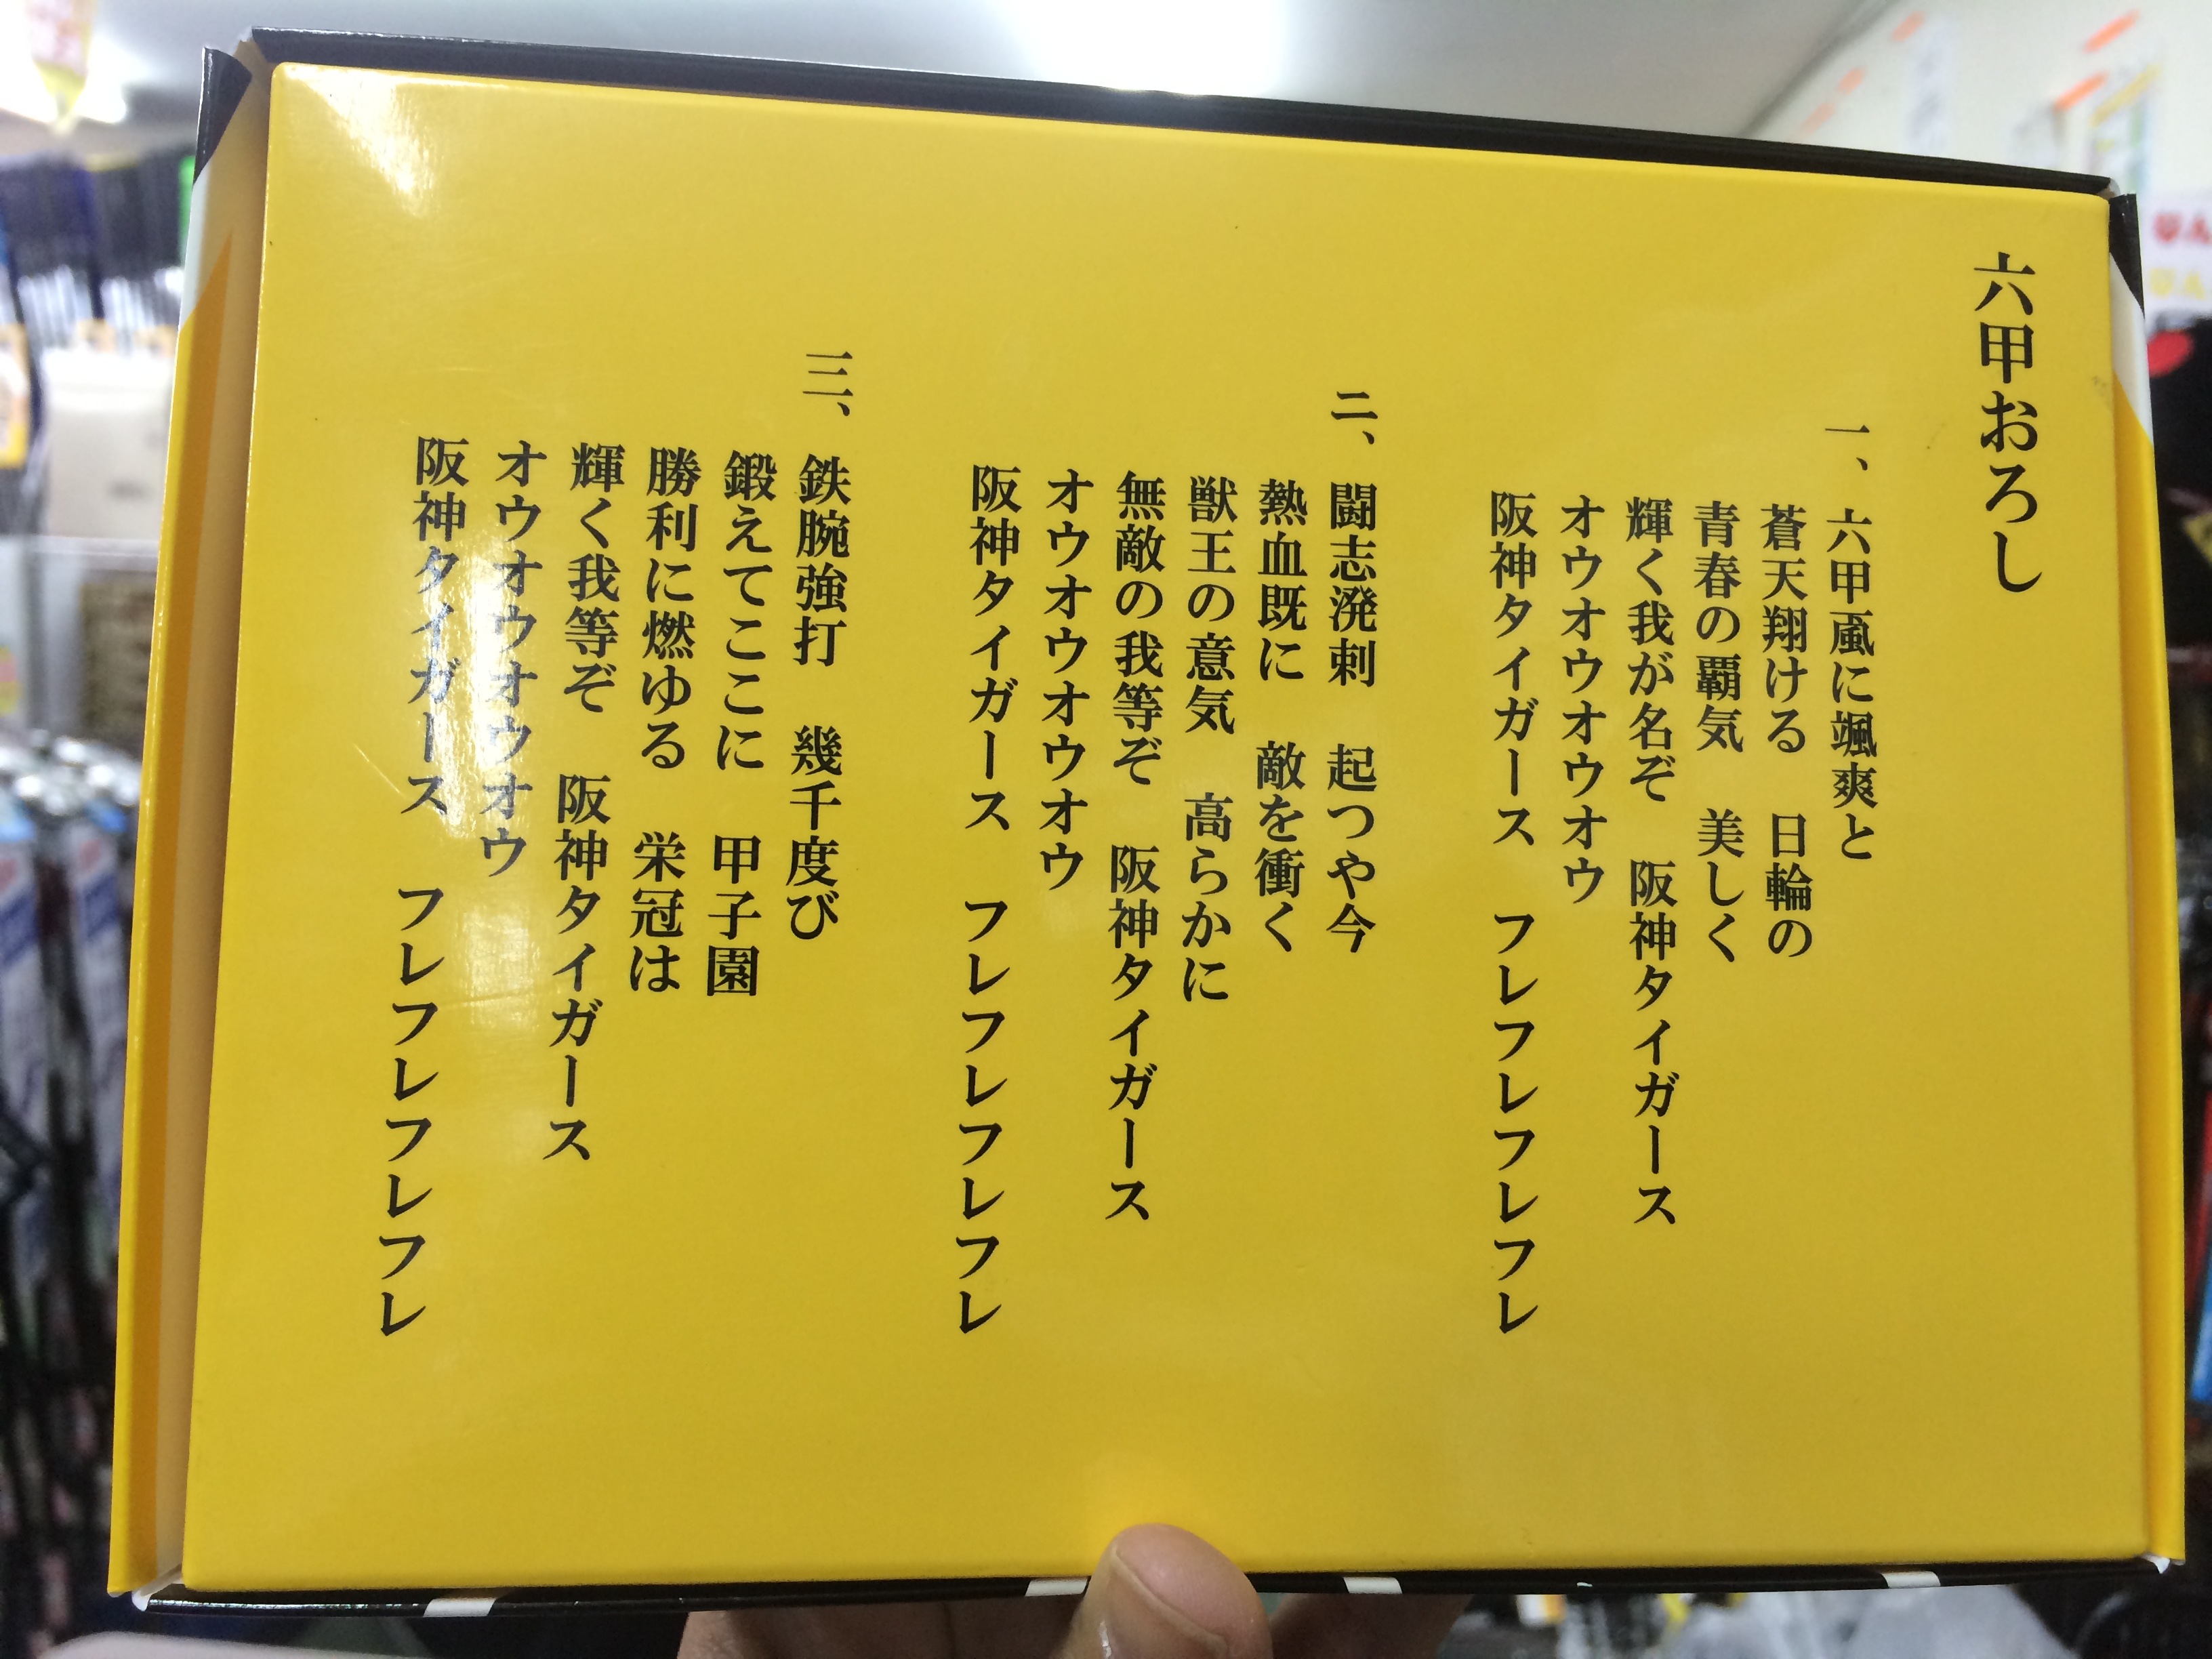 六甲おろし
一、六甲颪に颯爽と
蒼天翔ける　日輪の
青春の覇気　美しく
輝く我が名ぞ　阪神タイガース
オウオウオウオウ
阪神タイガース　フレフレフレフレ
二、闘志溌剌　起つや今
熱血既に　敵を衝く
獣王の意気　高らかに
無敵の我等ぞ　阪神タイガース
オウオウオウオウ
阪神タイガース　フレフレフレフレ
三、鉄腕強打　幾千度び
鍛えてここに　甲子園
勝利に燃ゆる　栄冠は
輝く我等ぞ　阪神タイガース
オウオウオウオウ
阪神タイガース　フレフレフレフレ